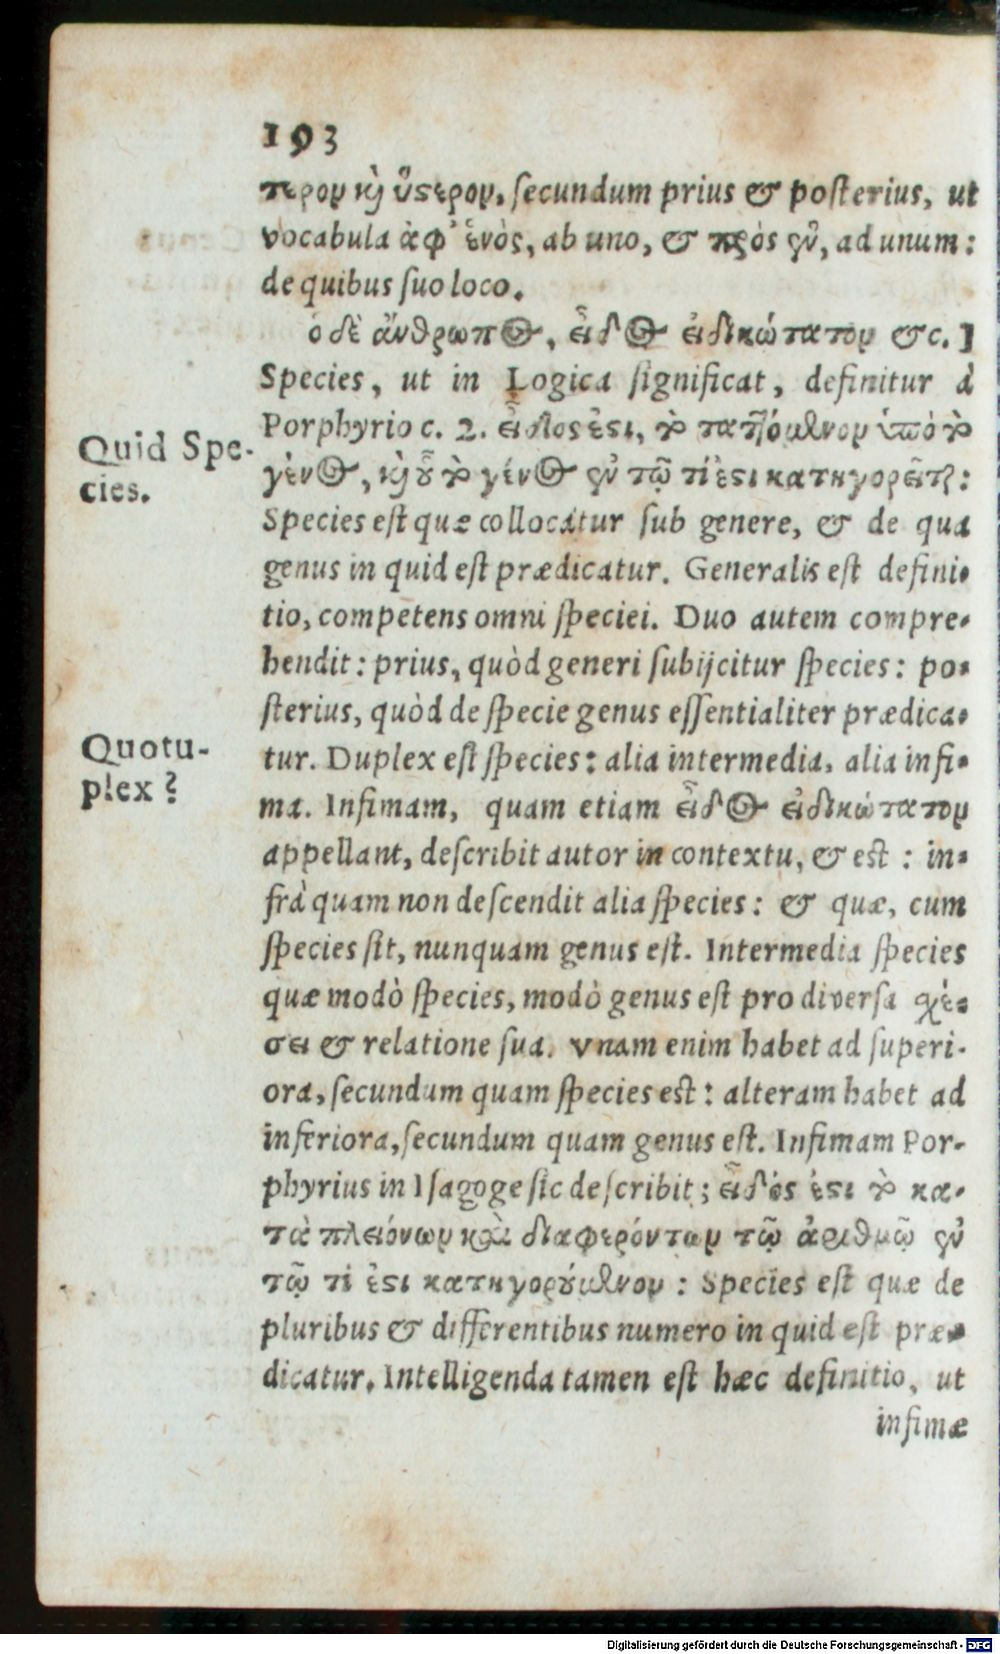 193
τερον κὶ ὕστερον, ſecundum prius & poſterius, ut
vocabula ἀφ' ἑνὸς, ab uno, & πρὸς ἓν, ad unum:
de quibus ſuo loco.
ὁ δὲ ἄνθρωπος, εἶδος εἰδικώτατον &c.]
Species, ut in Logica ſignificat, definitur à
Porphyrio c. 2. εἶδος ἐστι, τὸ ταττόμενον ὑπὸ τὸ
γένος, κὶ οὗ τὸ γένος ἐν τῷ τί ἐστι κατηγορεῖται:
Species eſt quæ collocatur ſub genere, & de qua
genus in quid eſt prædicatur. Generalis eſt defini-
tio, competens omni ſpeciei. Duo autem compre-
hendit: prius, quòd generi ſubijcitur ſpecies: po-
ſterius, quòd de ſpecie genus eſſentialiter prædica-
tur. Duplex eſt ſpecies: alia intermedia, alia infi-
ma. Infimam, quam etiam εἶδος εἰδικώτατον
appellant, deſcribit autor in contextu, & eſt: in-
frà quam non deſcendit alia ſpecies: & quæ, cum
ſpecies ſit, nunquam genus eſt. Intermedia ſpecies
quæ modò ſpecies, modò genus eſt pro diverſa σχέ-
σει & relatione ſua. Vnam enim habet ad ſuperi-
ora, ſecundum quam ſpecies eſt: alteram habet ad
inferiora, ſecundum quam genus eſt. Infimam Por-
phyrius in Iſagoge ſic deſcribit; εἶδός ἐστι τὸ κα-
τὰ πλειόνων καὶ διαφερόντων τῷ ἀριθμῷ ἐν
τῷ τί ἐστι κατηγορούμενον: Species eſt quæ de
pluribus & differentibus numero in quid eſt præ-
dicatur. Intelligenda tamen eſt hæc definitio, ut
infimæ
Quid Spe-
cies.
Quotu-
plex?
Digitalisierung gefördert durch die Deutsche Forschungsgemeinschaft - DFG